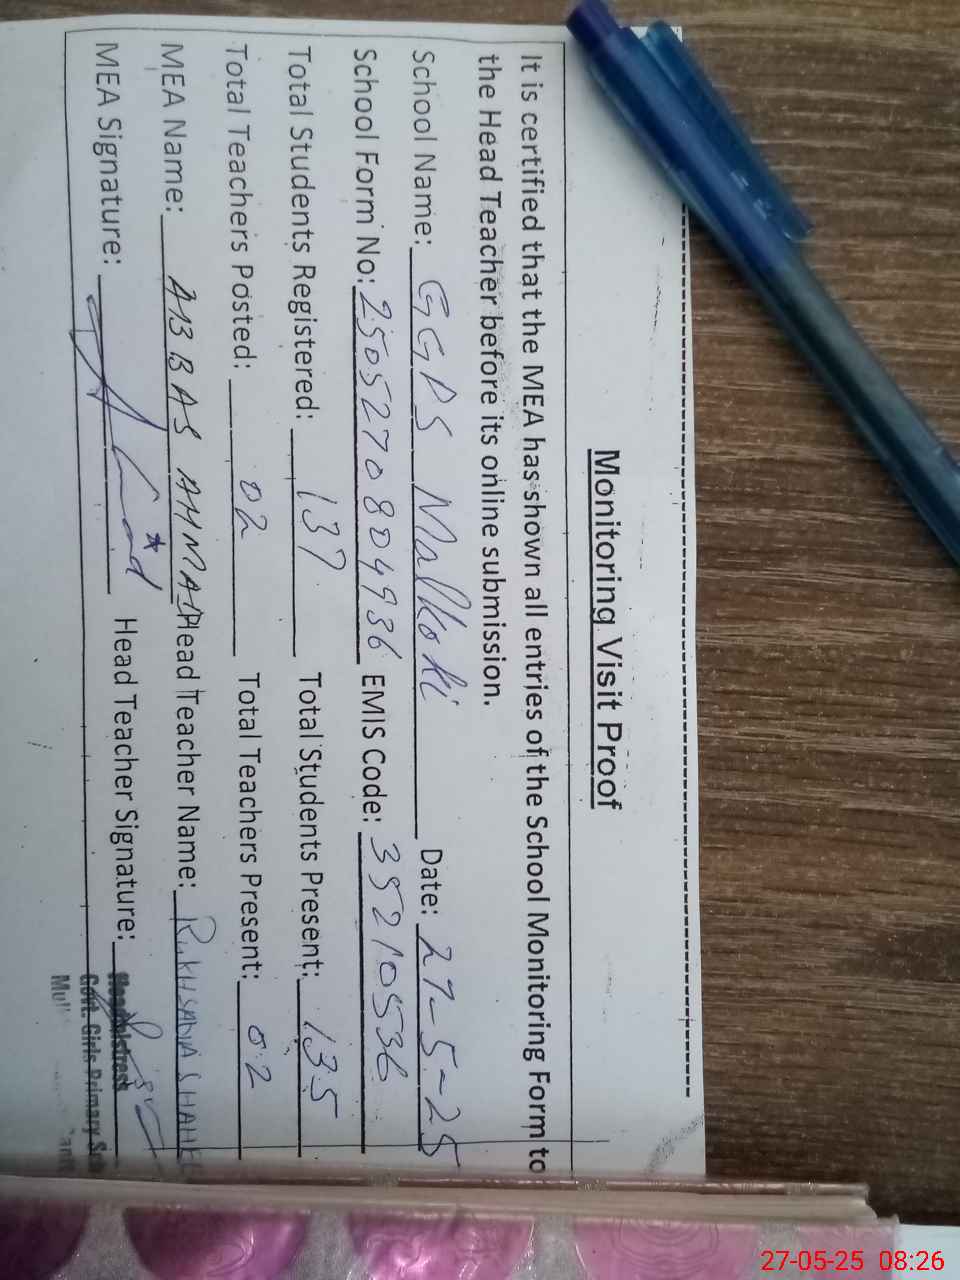 Monitoring Visit Proof
It is certified that the MEA has shown all entries of the School Monitoring Form to
the Head Teacher before its online submission.
School Name: GGPS Malkoki Date: 27-5-25
School Form No: 2505270804936 EMIS Code: 35210536
Total Students Registered: 137 Total Students Present: 135
Total Teachers Posted: 02 Total Teachers Present: 02
MEA Name: ABBAS AHMAD Head Teacher Name: RUKHSANA SHAHE
MEA Signature: Head Teacher Signature:
Headmistress
Govt. Girls Primary Sch
27-05-25 08:26